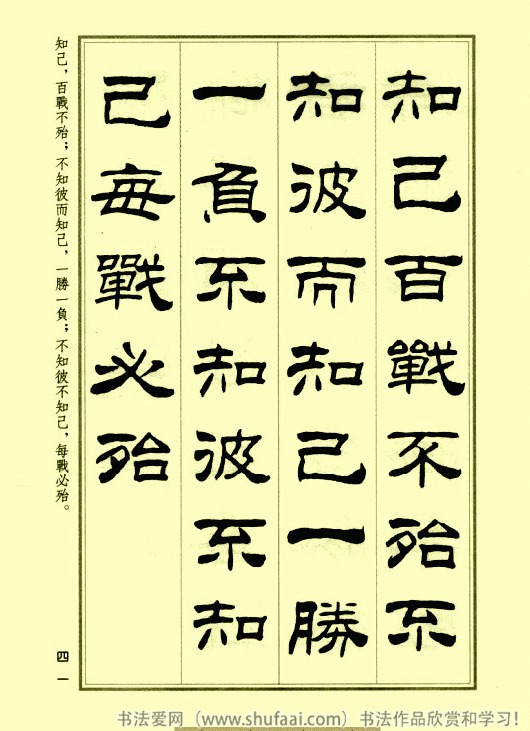 知己百戰不殆不
知彼而知己一勝
一負不知彼不知
己每戰必殆
知己，百戰不殆；不知彼而知己，一勝一負；不知彼不知己，每戰必殆。
四一
书法爱网（www.shufaai.com）书法作品欣赏和学习！